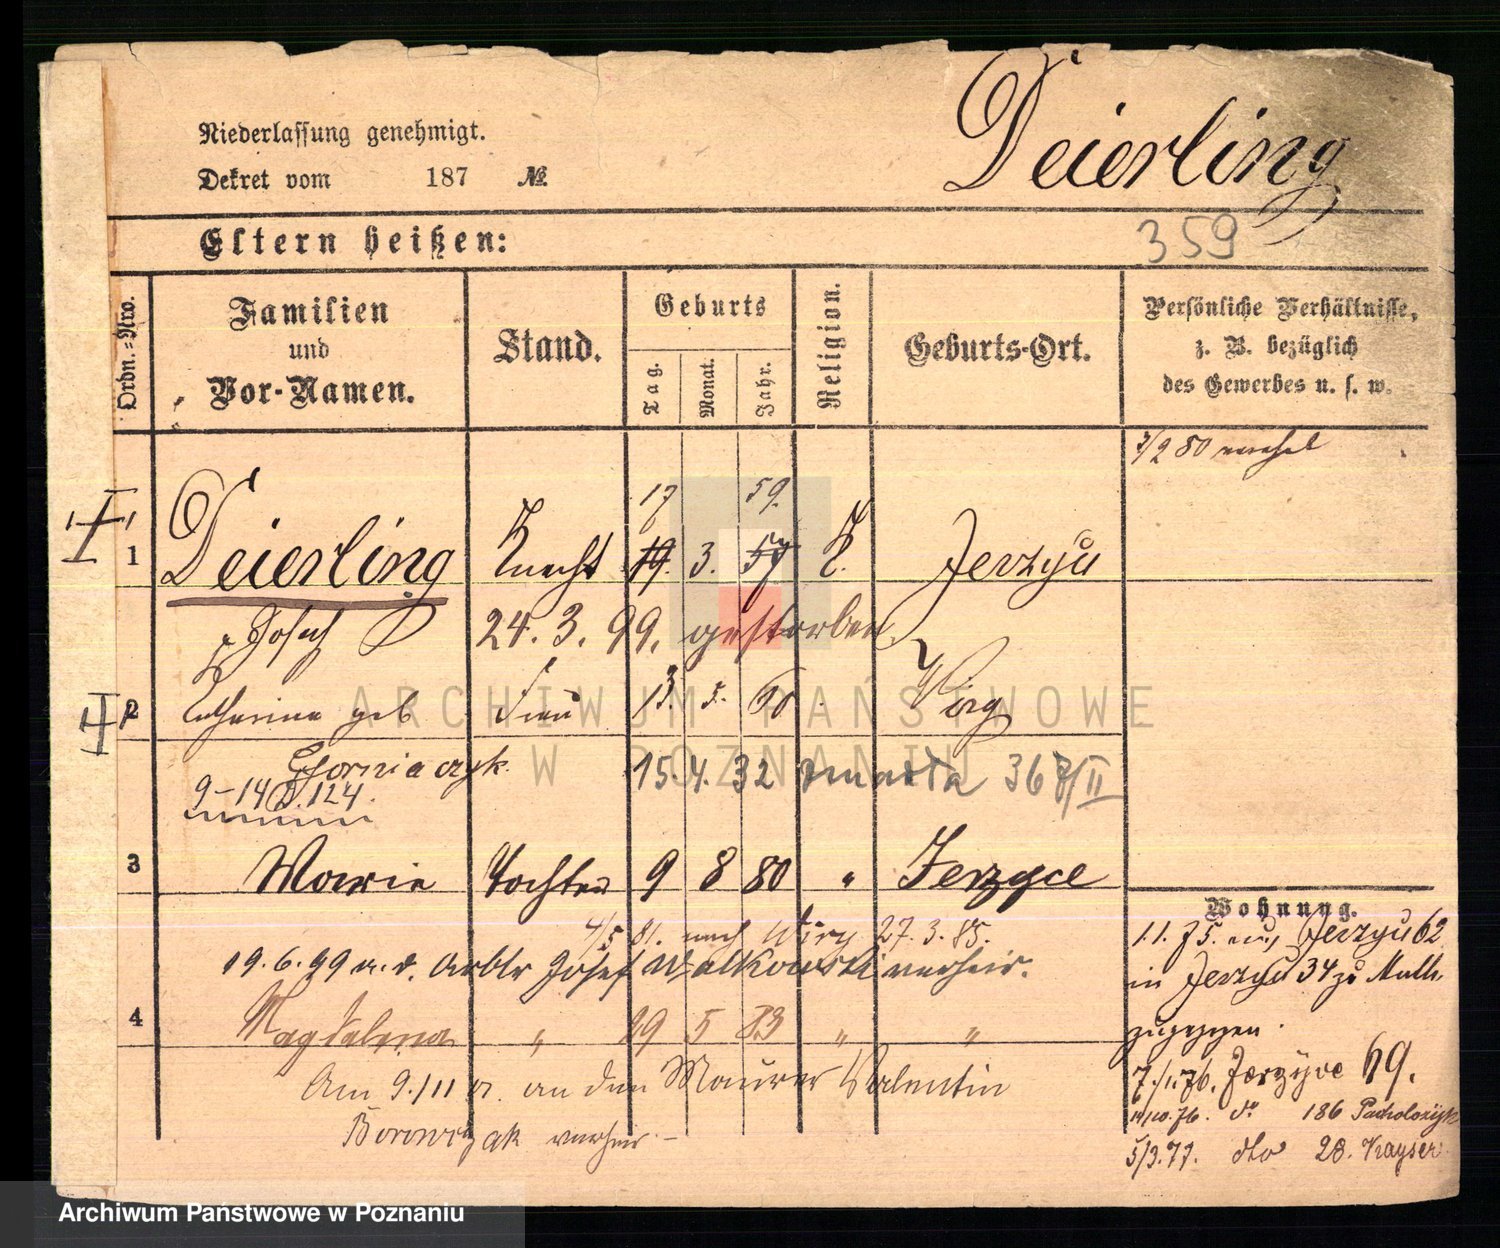 Niederlassung genehmigt.
Dekret vom 187 №
Deierling
Eltern heißen:
359
Ordn.=Nro.
Familien
und
Vor-Namen.
Stand.
Geburts
Tag.
Monat.
Jahr.
Religion.
Geburts-Ort.
Persönliche Verhältnisse,
z. B. bezüglich
des Gewerbes u. s. w.
2/2 80
17 59.
1 Deierling Knecht 19. 3. 57 K. Jerzyce
Josef 24. 3. 99. gestorben
2 Catharina geb Frau 13. 5. 60.
Gorniaczyk. 15. 4. 32 zmarła 36 8/II
9-14 D. 124.
3 Marie Tochter 9 8 80 " Jerzyce
4/5 81. nach Wiry 27. 3. 85.
19. 6. 99 a. d. Arbtr Josef Walkowski verheir.
4 Magdalena " 29 5 83 " "
Am 9./11 an den Maurer Valentin
Borowczak verheir. -
Wohnung.
1. 1. 75. Jerzyce 62
in Jerzyce 34 zu
zugezogen.
7./1. 76. Jerzyce 69.
10. 76. do 186
5/3. 77. dto 28. Kayser
ARCHIWUM PAŃSTWOWE
W POZNANIU
Archiwum Państwowe w Poznaniu